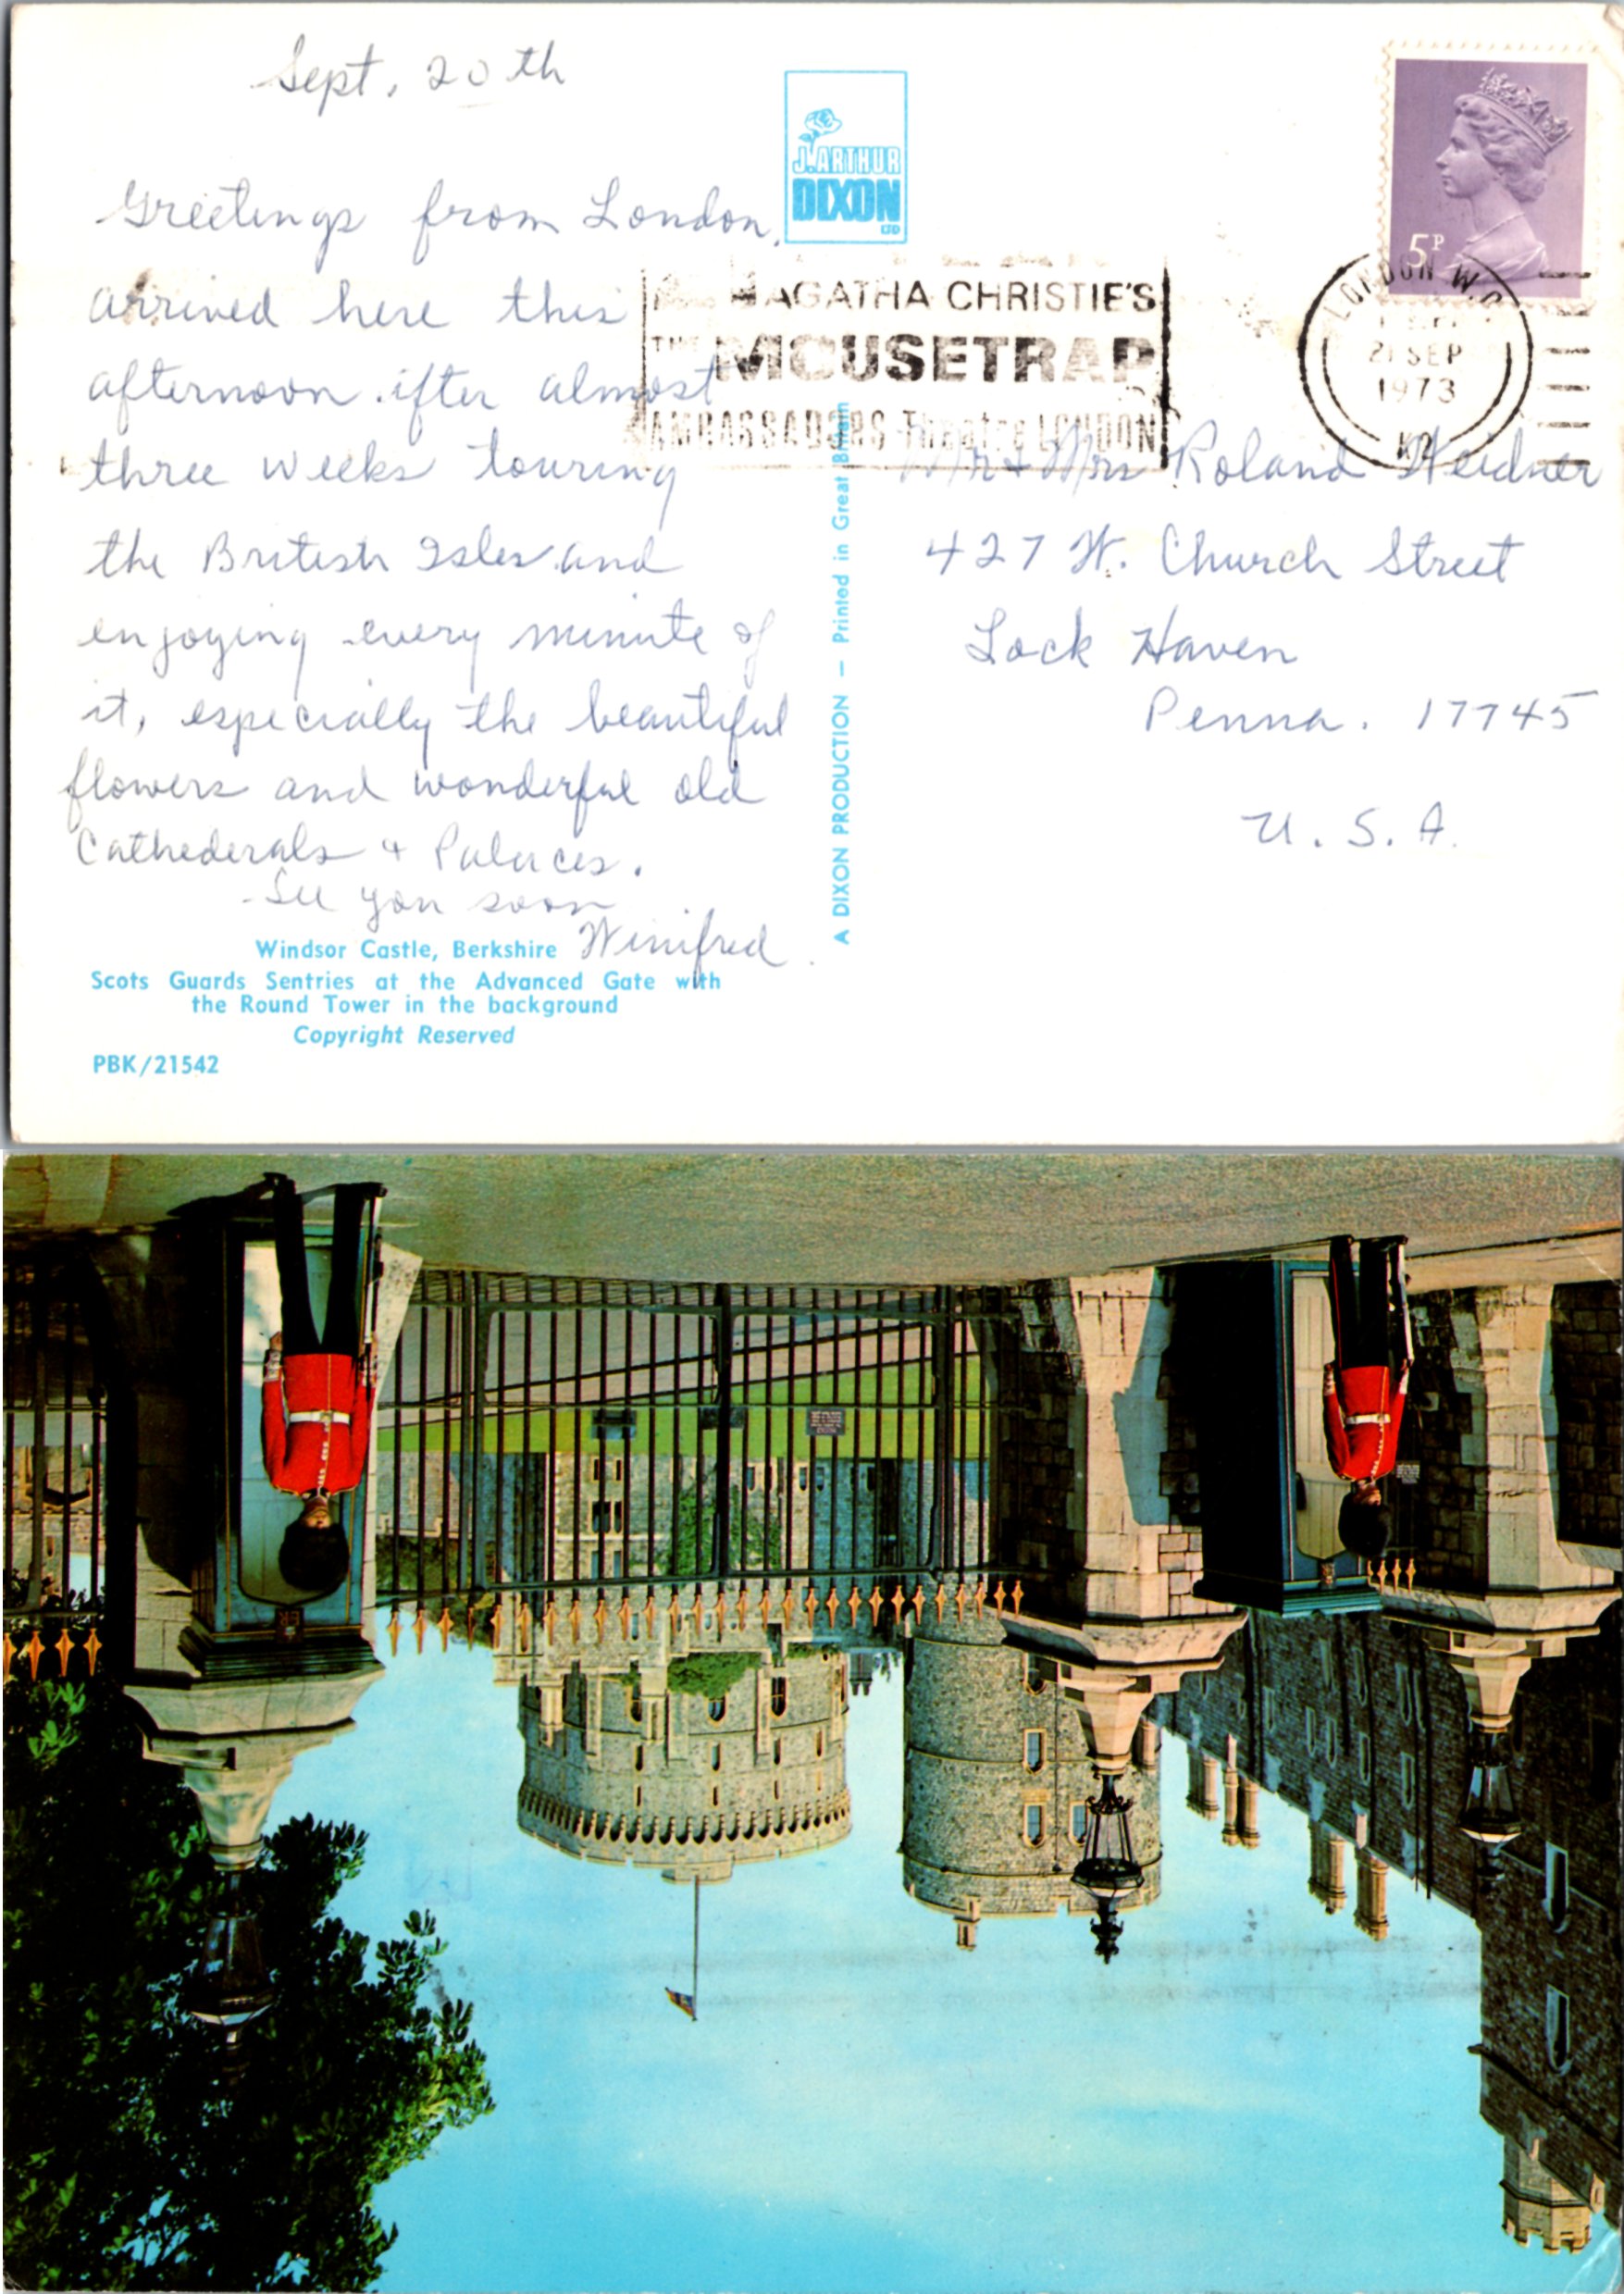 Sept. 20th
Greetings from London.
arrived here this
afternoon after almost
three weeks touring
the British Isles and
enjoying every minute of
it, especially the beautiful
flowers and wonderful old
Cathederals & Palaces.
See you soon
Winifred
Windsor Castle, Berkshire
Scots Guards Sentries at the Advanced Gate with
the Round Tower in the background
Copyright Reserved
PBK/21542
J. ARTHUR
DIXON
LTD
A DIXON PRODUCTION — Printed in Great Britain
AGATHA CHRISTIE'S
THE MOUSETRAP
AMBASSADORS Theatre LONDON
5P
LONDON W.C.
21 SEP
1973
Mr & Mrs Roland Weidner
427 W. Church Street
Lock Haven
Penna. 17745
U. S. A.